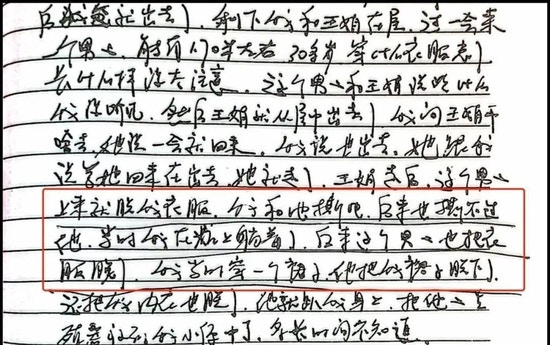 就出去了，剩下我和王娟在屋，过一会来
个男的，能有170米左右，30多岁，穿什么衣服忘了
长什么样没太注意，这个男的和王娟说些什么
我没听见，然后王娟就从屋中出去了，我问王娟干
啥去，她说一会就回来，我说也出去，她跟我
说等她回来在出去，她就走了，王娟走后，这个男的
上来就脱我衣服，我就和他撕吧，后来也撕不过
他，当时我在炕上躺着了，后来这个男的也把衣
服脱了，我当时穿一个裙子，他把我裙子脱下了，
还把我内衣也脱了，他就趴我身上，把他的生
殖器放到我小便中了，多长时间不知道